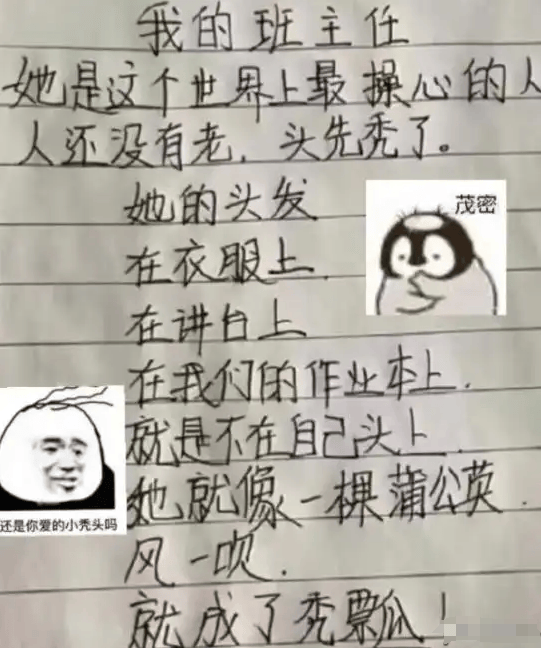 我的班主任
她是这个世界上最操心的人
人还没有老，头先秃了。
她的头发
茂密
在衣服上.
在讲台上
在我们的作业本上.
就是不在自己头上
还是你爱的小秃头吗
她就像一棵蒲公英.
风一吹.
就成了秃票瓜！